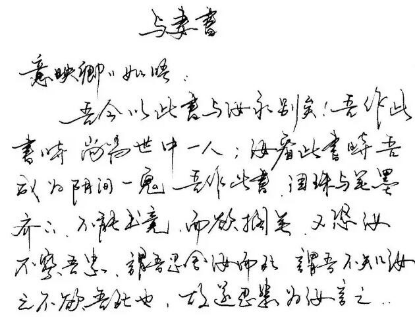 与妻書
意映卿卿如晤：
吾今以此書与汝永别矣！吾作此
書時尚為世中一人；汝看此書時吾
成为阴间一鬼 吾作此書，泪珠与笔墨
齐下，不能书竟，而欲搁笔，又恐汝
不察吾衷，謂吾忍舍汝而死，謂吾不知汝
之不欲吾死也，故遂忍悲为汝言之..